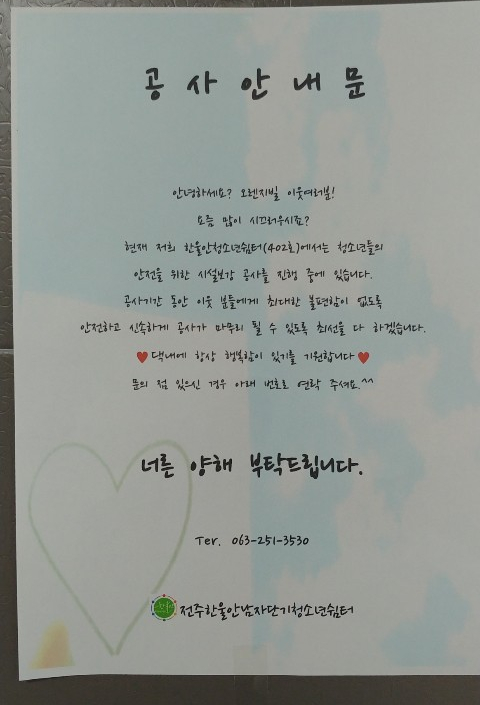 공사안내문
안녕하세요? 오렌지빌 이웃여러분!
요즘 많이 시끄러우시죠?
현재 저희 한울안청소년쉼터(402호)에서는 청소년들의
안전을 위한 시설보강 공사를 진행 중에 있습니다.
공사기간 동안 이웃 분들에게 최대한 불편함이 없도록
안전하고 신속하게 공사가 마무리 될 수 있도록 최선을 다 하겠습니다.
♥댁내에 항상 행복함이 있기를 기원합니다♥
문의 점 있으신 경우 아래 번호로 연락 주세요.^^
너른 양해 부탁드립니다.
Ter. 063-251-3530
전주한울안남자단기청소년쉼터